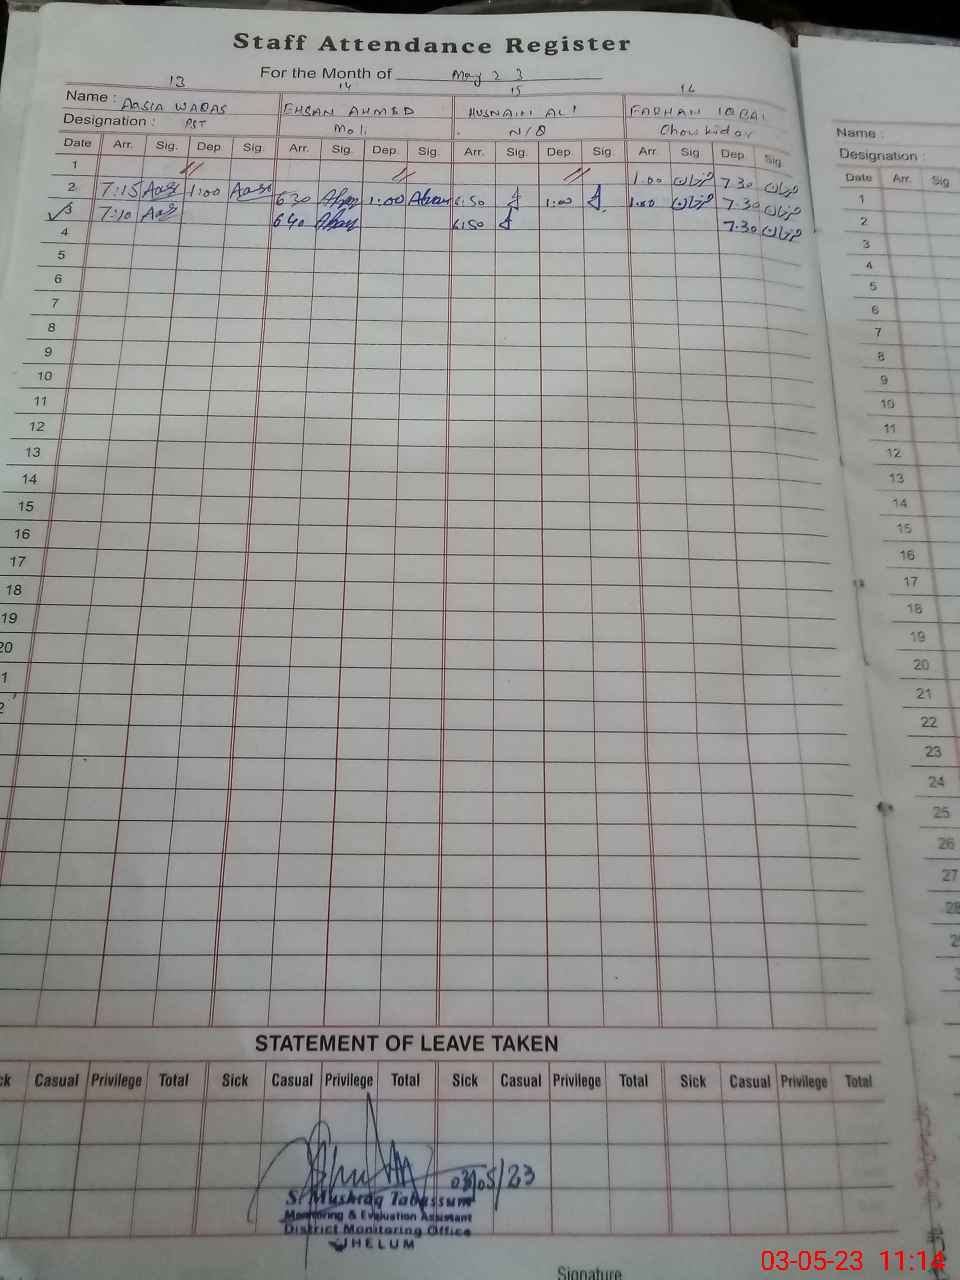 Staff Attendance Register
For the Month of May 23
13 14 15 16
Name : AASIA WAQAS EHSAN AHMED HUSNAIN ALI FARHAN IQBAL
Designation : PST Mali N/Q Chowkidar
Date Arr. Sig. Dep. Sig. Arr. Sig. Dep. Sig. Arr. Sig. Dep. Sig. Arr. Sig. Dep. Sig.
1 // // // 1.00 فرحان 7.30 فرحان
2 7:15 Aasia 1:00 Aasia 630 1:00 6.50 1:00 1.00 فرحان 7.30 فرحان
3 7:10 Aasia 640 6.50 7.30 فرحان
4
5
6
7
8
9
10
11
12
13
14
15
16
17
18
19
20
1
2
STATEMENT OF LEAVE TAKEN
ck Casual Privilege Total Sick Casual Privilege Total Sick Casual Privilege Total Sick Casual Privilege Total
03/05/23
S. Mushtaq Tabassum
Monitoring & Evaluation Assistant
District Monitoring Office
JHELUM
Signature
Name :
Designation :
Date Arr. Sig
1
2
3
4
5
6
7
8
9
10
11
12
13
14
15
16
17
18
19
20
21
22
23
24
25
26
27
28
03-05-23 11:14